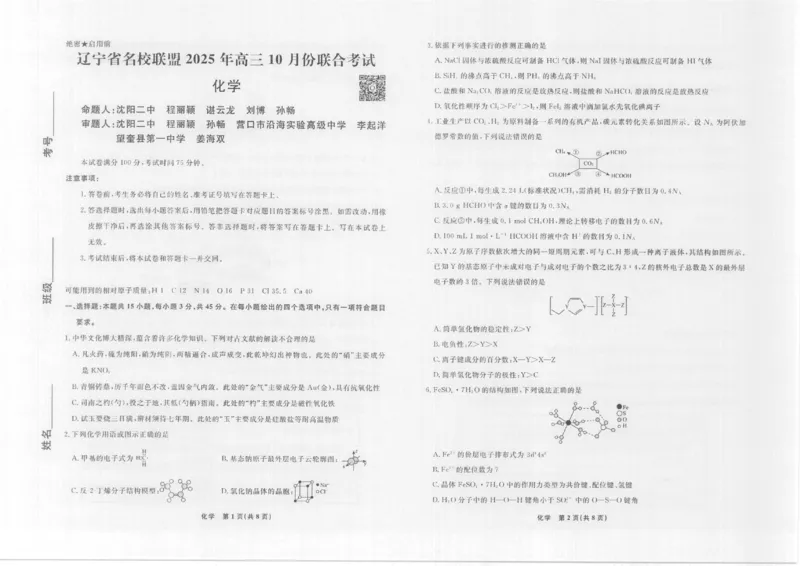 绝密★启用前
辽宁省名校联盟2025年高三10月份联合考试
化学
命题人:沈阳二中 程丽颖 谌云龙 刘博 孙畅
审题人:沈阳二中 程丽颖 孙畅 营口市沿海实验高级中学 李起洋
望奎县第一中学 姜海双
本试卷满分100分,考试时间75分钟。
注意事项:
1.答卷前,考生务必将自己的姓名、准考证号填写在答题卡上。
2.答选择题时,选出每小题答案后,用铅笔把答题卡对应题目的答案标号涂黑。如需改动,用橡
皮擦干净后,再选涂其他答案标号。答非选择题时,将答案写在答题卡上。写在本试卷上
无效。
3.考试结束后,将本试卷和答题卡一并交回。
可能用到的相对原子质量:H 1 C 12 N 14 O 16 P 31 Cl 35.5 Ca 40
一、选择题:本题共15小题,每小题3分,共45分。在每小题给出的四个选项中,只有一项符合题目
要求。
1.中华文化博大精深,蕴含着许多化学知识。下列对古文献的解读不合理的是
A.凡火药,硫为纯阳,硝为纯阴,两精逼合,成声成变,此乾坤幻出神物也。此处的“硝”主要成分
是KNO₃
B.青铜樽彝,历千年而色不改,盖因金气内敛。此处的“金气”主要成分是Au(金),具有抗氧化性
C.司南之杓(勺),投之于地,其柢(勺柄)指南。此处的“杓”主要成分是磁性氧化铁
D.试玉要烧三日满,辨材须待七年期。此处的“玉”主要成分是硅酸盐等耐高温物质
2.下列化学用语或图示正确的是
A.甲基的电子式为
B.基态钠原子最外层电子云轮廓图:
C.反-2-丁烯分子结构模型:
D.氯化钠晶体的晶胞: Na⁺
Cl⁻
考号
班级
姓名
化学 第1页(共8页)
3.依据下列事实进行的推测正确的是
A.NaCl固体与浓硫酸反应可制备HCl气体,则NaI固体与浓硫酸反应可制备HI气体
B.SiH₄的沸点高于CH₄,则PH₃的沸点高于NH₃
C.盐酸和Na₂CO₃溶液的反应是放热反应,则盐酸和NaHCO₃溶液的反应是放热反应
D.氧化性顺序为Cl₂>Fe³⁺>I₂,则FeI₂溶液中滴加氯水先氧化碘离子
4.工业生产以CO₂、H₂为原料制备一系列的有机产品,碳元素转化关系如图所示。设N_A为阿伏加
德罗常数的值,下列说法错误的是
CH₄ ① ② HCHO
CO₂
CH₃OH ③ ④ HCOOH
A.反应①中,每生成2.24 L(标准状况)CH₄,需消耗H₂的分子数目为0.4N_A
B.3.0 g HCHO中含σ键的数目为0.3N_A
C.反应③中,每生成0.1 mol CH₃OH,理论上转移电子的数目为0.6N_A
D.100 mL 1 mol·L⁻¹ HCOOH溶液中含H⁺的数目为0.1N_A
5.X、Y、Z为原子序数依次增大的同一短周期元素,可与C、H形成一种离子液体,其结构如图所示。
已知Y的基态原子中未成对电子与成对电子的个数之比为3∶4,Z的核外电子总数是X的最外层
电子数的3倍。下列说法错误的是
A.简单氢化物的稳定性:Z>Y
B.电负性:Z>Y>X
C.离子键成分的百分数:X—Y>X—Z
D.简单氢化物分子的极性:Y>C
6.FeSO₄·7H₂O的结构如图,下列说法正确的是
Fe
S
O
H
A.Fe²⁺的价层电子排布式为3d⁴4s²
B.Fe²⁺的配位数为7
C.晶体FeSO₄·7H₂O中的作用力类型为共价键、配位键、氢键
D.H₂O分子中的H—O—H键角小于SO₄²⁻中的O—S—O键角
化学 第2页(共8页)